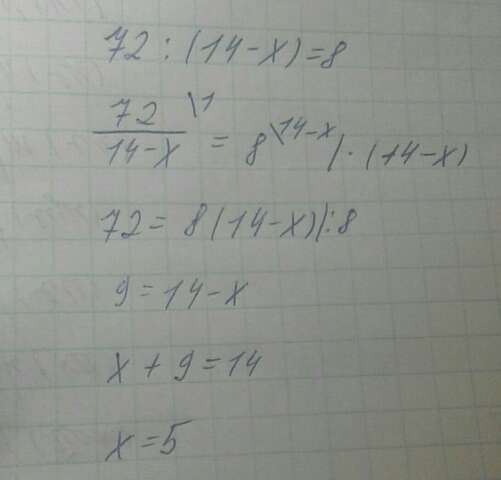 72 : (14-x)=8
72 \1
14-x = 8 \14-x /·(14-x)
72= 8(14-x)|:8
9=14-x
x+9=14
x=5